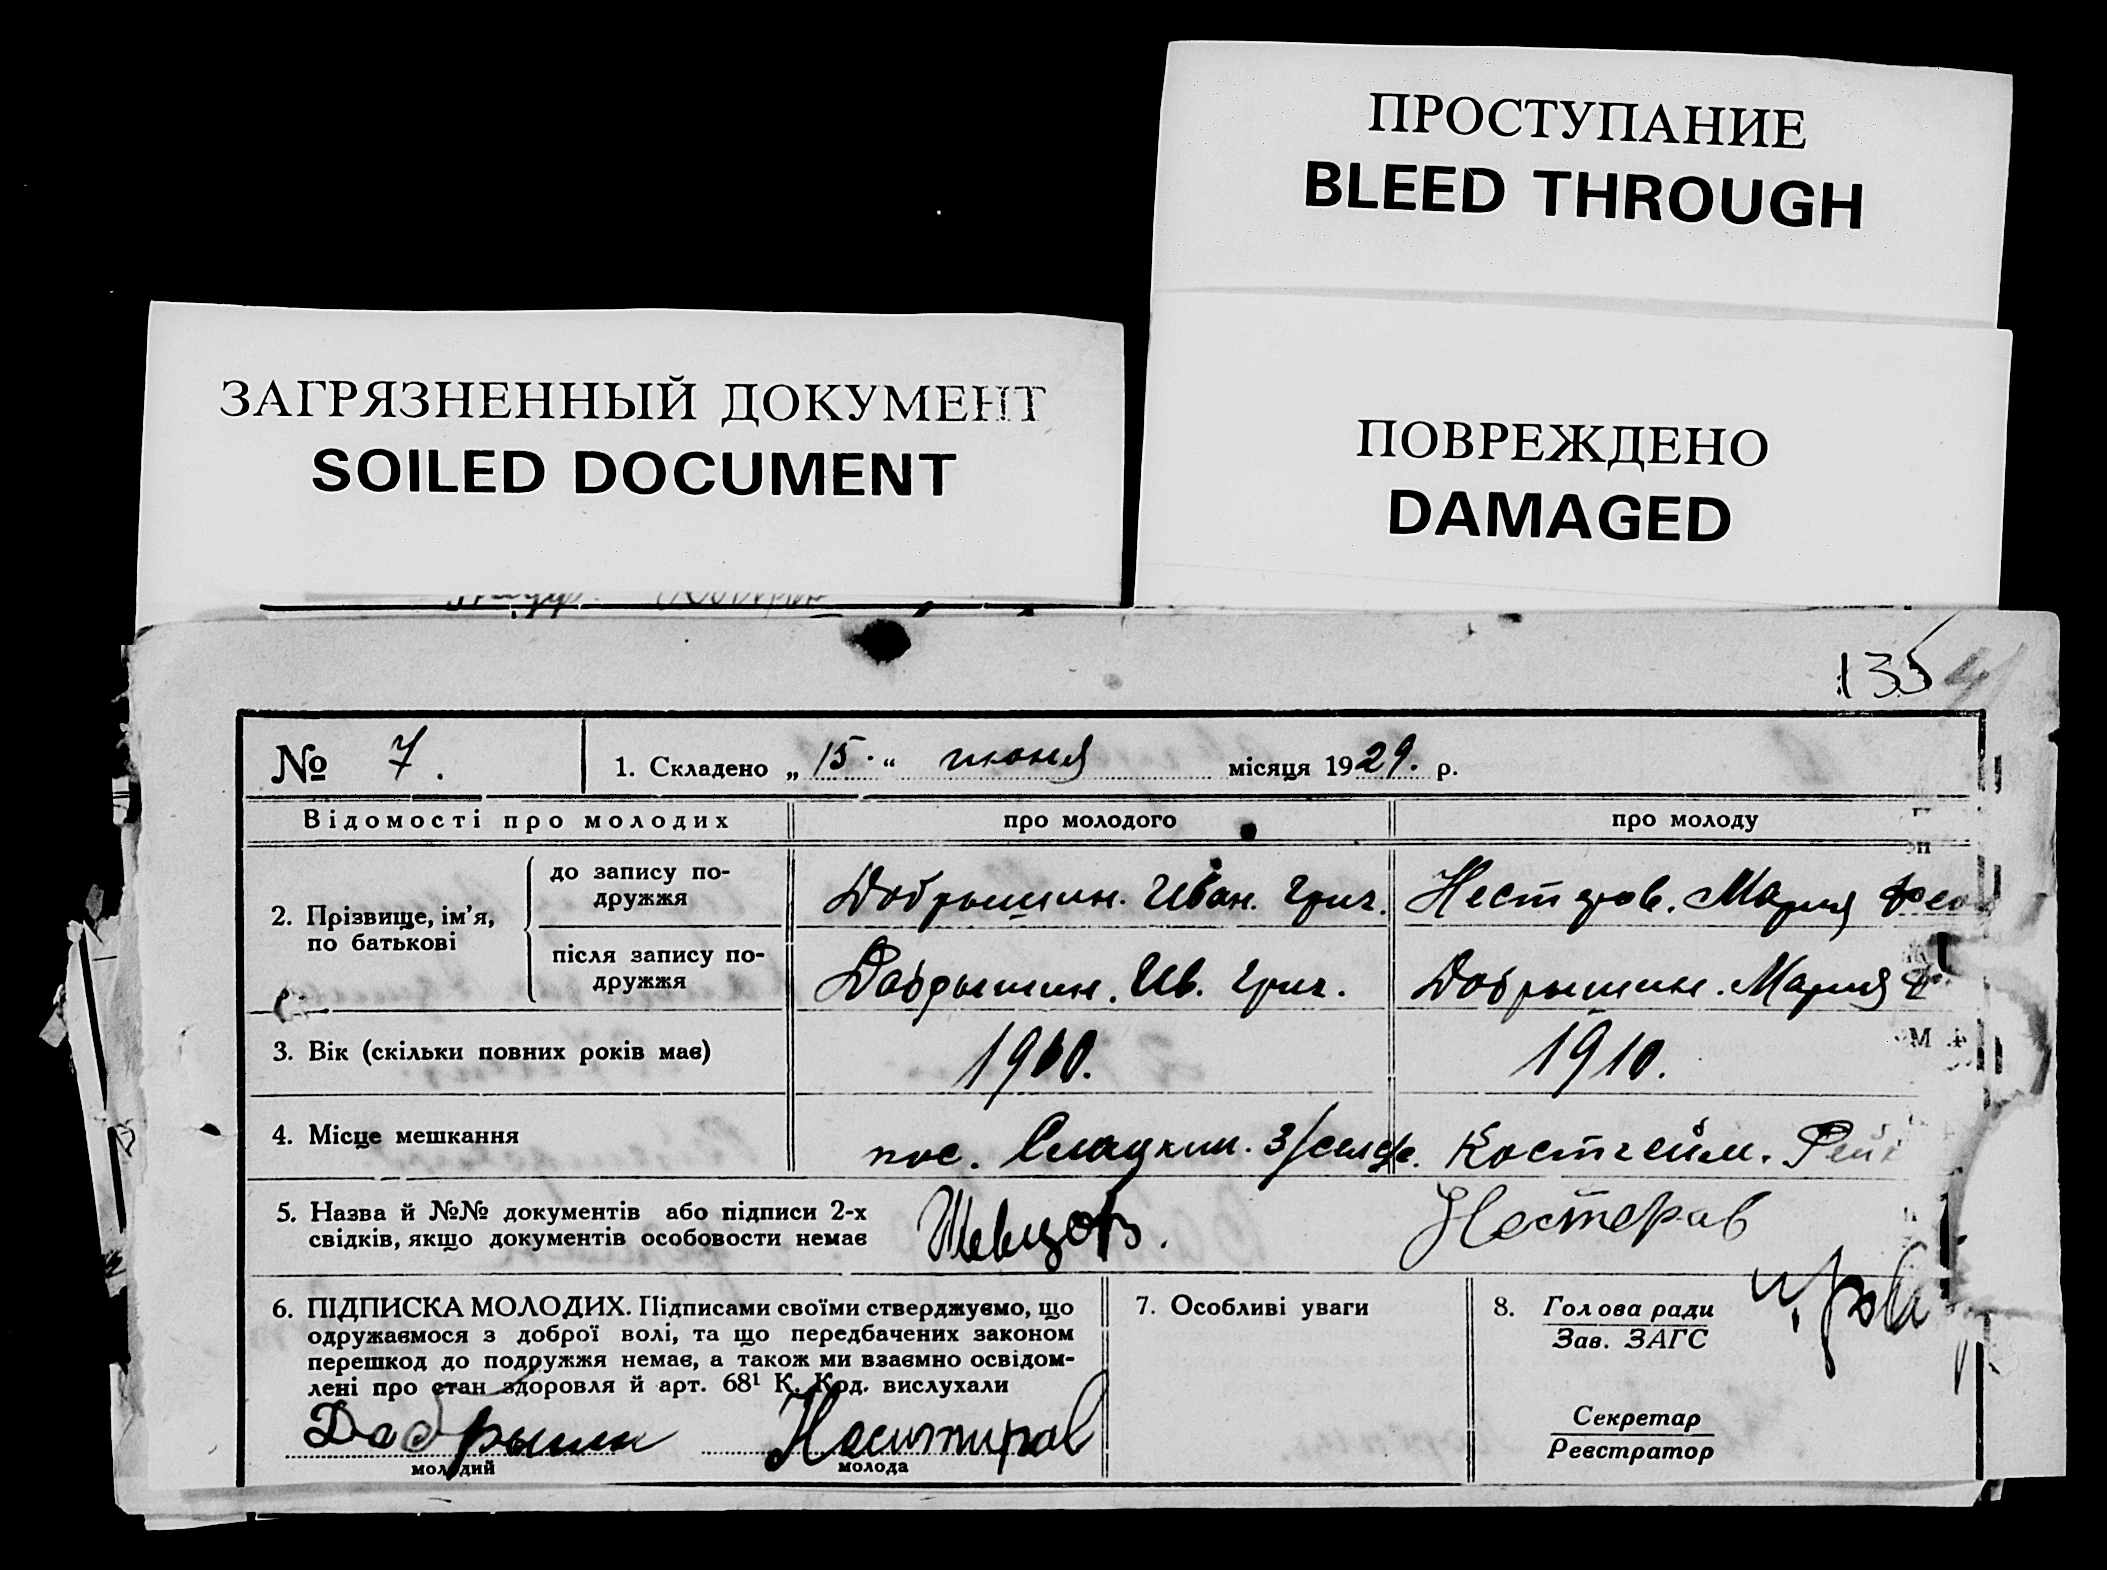 ПРОСТУПАНИЕ
BLEED THROUGH
ЗАГРЯЗНЕННЫЙ ДОКУМЕНТ
SOILED DOCUMENT
ПОВРЕЖДЕНО
DAMAGED
135
№ 7.
1. Складено „ 15 “ июня місяця 1929. р.
Відомості про молодих
про молодого
про молоду
2. Прізвище, ім’я,
по батькові
до запису по-
дружжя
Добрышин. Иван. Григ.
Нестеров. Мария Фео
після запису по-
дружжя
Добрышин. Ив. Григ.
Добрышин. Мария Ф.
3. Вік (скільки повних років має)
1910.
1910.
4. Місце мешкання
пос. з/сельс. Костгейм.
5. Назва й №№ документів або підписи 2-х
свідків, якщо документів особовости немає
Шевцов.
Нестеров
6. ПІДПИСКА МОЛОДИХ. Підписами своїми стверджуємо, що
одружаємося з доброї волі, та що передбачених законом
перешкод до подружжя немає, а також ми взаємно освідом-
лені про стан здоровля й арт. 68¹ К. Код. вислухали
Добрышин
Неситиров
молодий
молода
7. Особливі уваги
8. Голова ради
Зав. ЗАГС
Секретар
Реєстратор